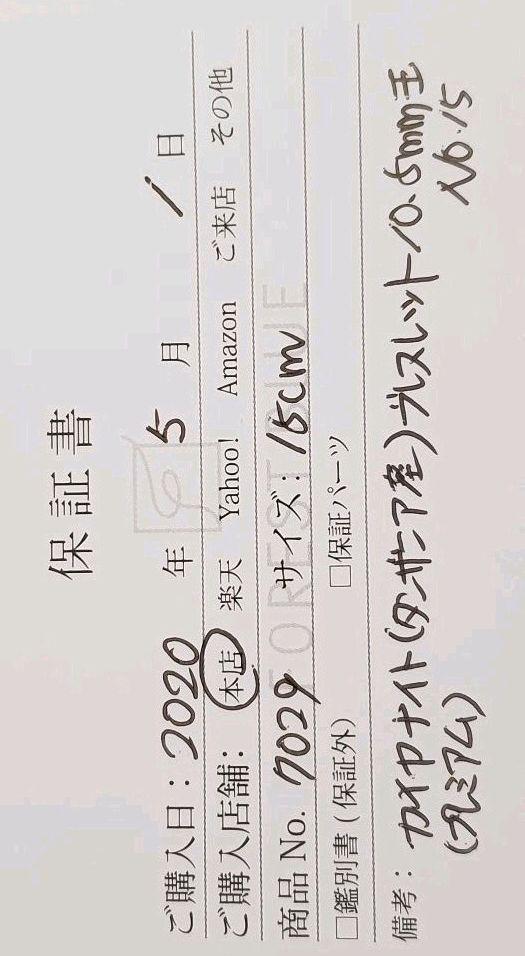 保証書
ご購入日：2020年 5月 1日
ご購入店舗：本店 楽天 Yahoo! Amazon ご来店 その他
商品 No. 7029 サイズ：15cm
FOREST BLUE
□鑑別書（保証外） □保証パーツ
備考：カイヤナイト(タンザニア産)ブレスレット10.5mm玉
(プレミアム) No.15